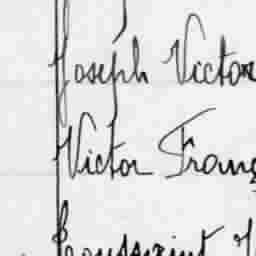 Joseph Victor
Victor Franç
Toussaint